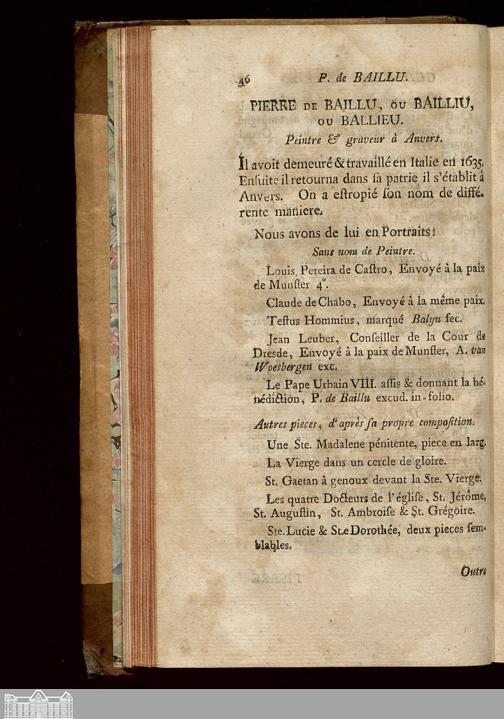 46 P. de BAILLU.
PIERRE DE BAILLU, OU BAILLIU,
OU BALLIEU.
Peintre & graveur à Anvers.
Il avoit demeuré & travaillé en Italie en 1635.
Enſuite il retourna dans ſa patrie il s'établit à
Anvers. On a eſtropié ſon nom de diffé-
rente maniere.
Nous avons de lui en Portraits:
Sans nom de Peintre.
Louis Pereira de Caſtro, Envoyé à la paix
de Munſter 4°.
Claude de Chabo, Envoyé à la même paix.
Teſtus Hommius, marqué Balyu ſec.
Jean Leuber, Conſeiller de la Cour de
Dresde, Envoyé à la paix de Munſter, A. van
Woesbergen exc.
Le Pape Urbain VIII. aſſis & donnant la bé-
nédiction, P. de Baillu excud. in-folio.
Autres pieces, d'après ſa propre compoſition.
Une Ste. Madalene pénitente, piece en larg.
La Vierge dans un cercle de gloire.
St. Gaetan à genoux devant la Ste. Vierge.
Les quatre Docteurs de l'égliſe, St. Jérôme,
St. Auguſtin, St. Ambroiſe & St. Grégoire.
Ste. Lucie & Ste Dorothée, deux pieces ſem-
blables.
Outre